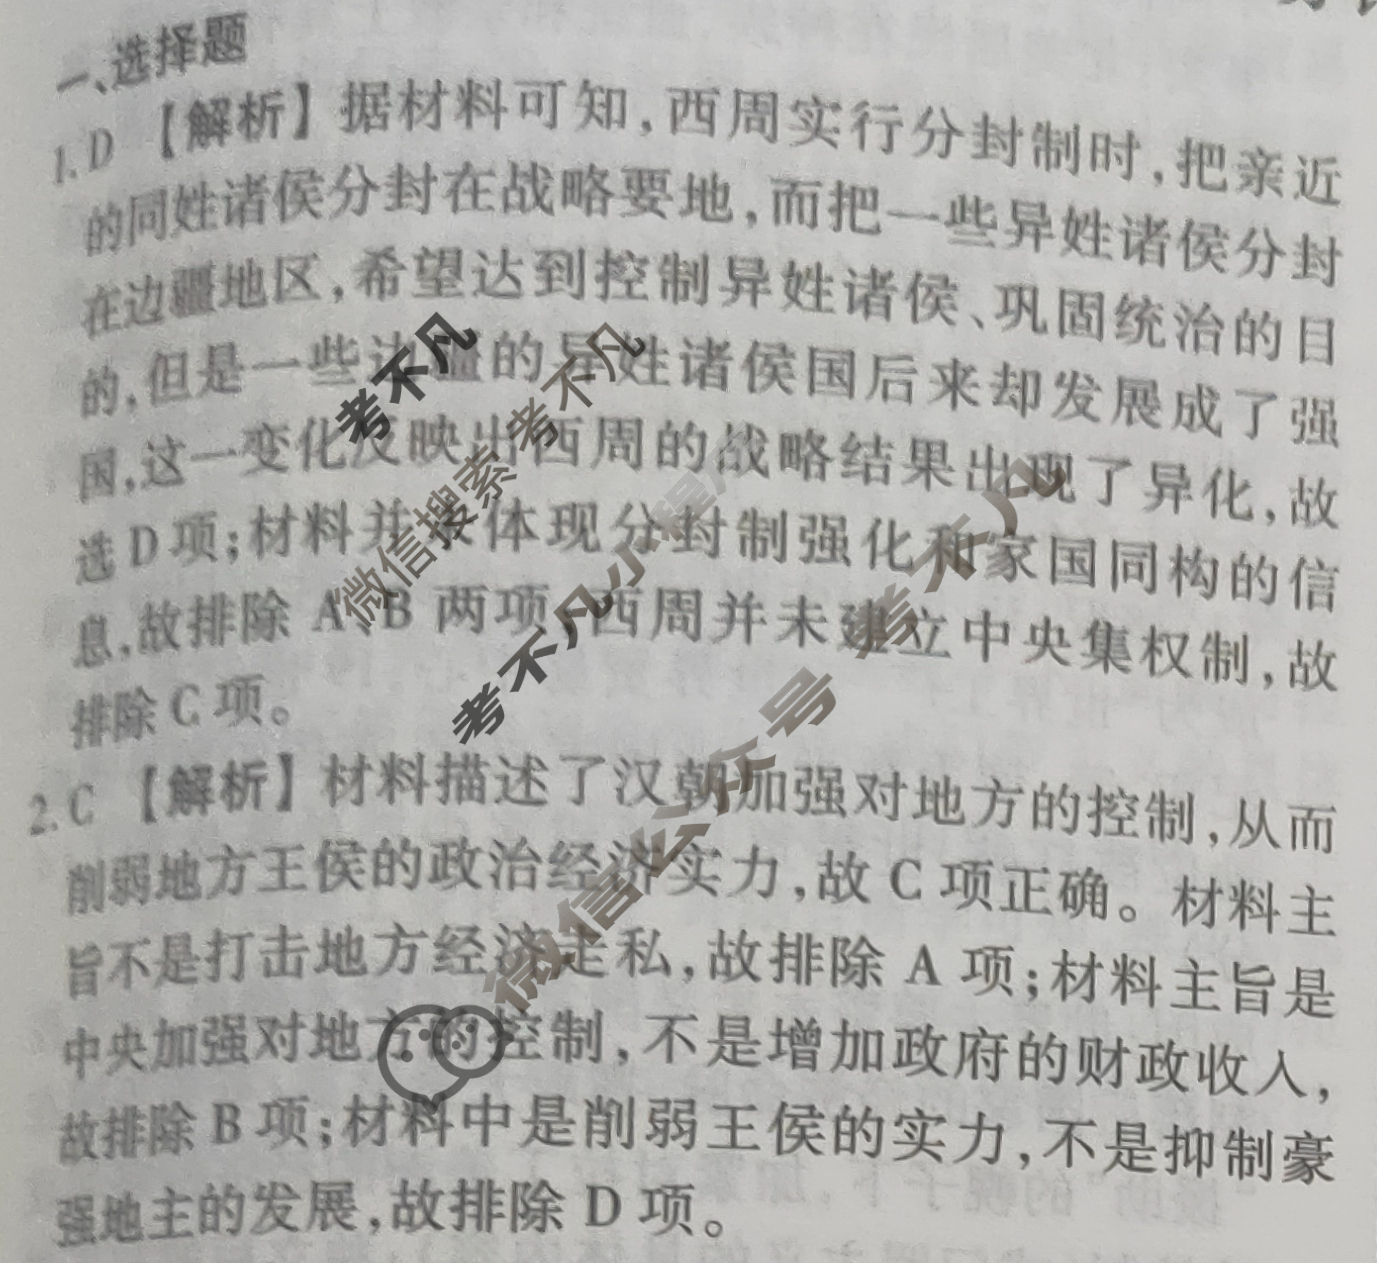 一、选择题
1.D 【解析】据材料可知,西周实行分封制时,把亲近
的同姓诸侯分封在战略要地,而把一些异姓诸侯分封
在边疆地区,希望达到控制异姓诸侯、巩固统治的目
的,但是一些边疆的异姓诸侯国后来却发展成了强
国,这一变化反映出西周的战略结果出现了异化,故
选D项;材料并未体现分封制强化和家国同构的信
息,故排除 A、B 两项;西周并未建立中央集权制,故
排除C项。
2.C 【解析】材料描述了汉朝加强对地方的控制,从而
削弱地方王侯的政治经济实力,故 C 项正确。材料主
旨不是打击地方经济走私,故排除 A 项;材料主旨是
中央加强对地方的控制,不是增加政府的财政收入,
故排除B项;材料中是削弱王侯的实力,不是抑制豪
强地主的发展,故排除 D 项。
考不凡
微信搜索 考不凡
考不凡小程序
微信公众号 考不凡